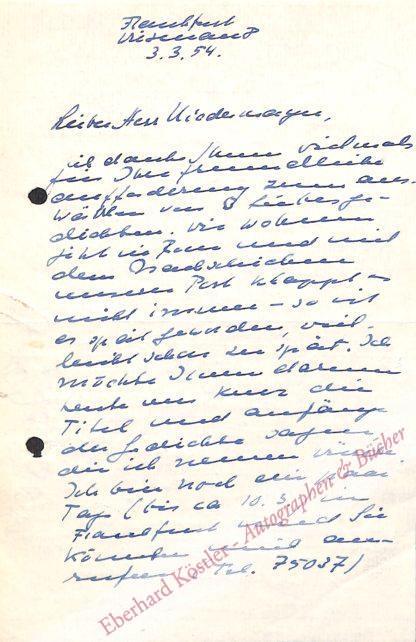 Frankfurt
3.3.54.
Lieber Herr Niedermayer,
ich danke Ihnen vielmals
für Ihre freundliche
Aufforderung zum aus-
wählen von 8 Liebesge-
dichten. Wir wohnen
jetzt in Rom und mit
dem Nachschicken
unserer Post klappt es
nicht immer – so ist
es spät geworden, viel-
leicht schon zu spät. Ich
möchte Ihnen darum
heute nur kurz die
Titel und Anfänge
der Gedichte sagen,
die ich nennen würde
Ich bin noch ein paar
Tage (bis ca 10.3. in
Frankfurt und Sie
könnten mich an-
rufen Tel. 75037)
Eberhard Köstler - Autographen & Bücher